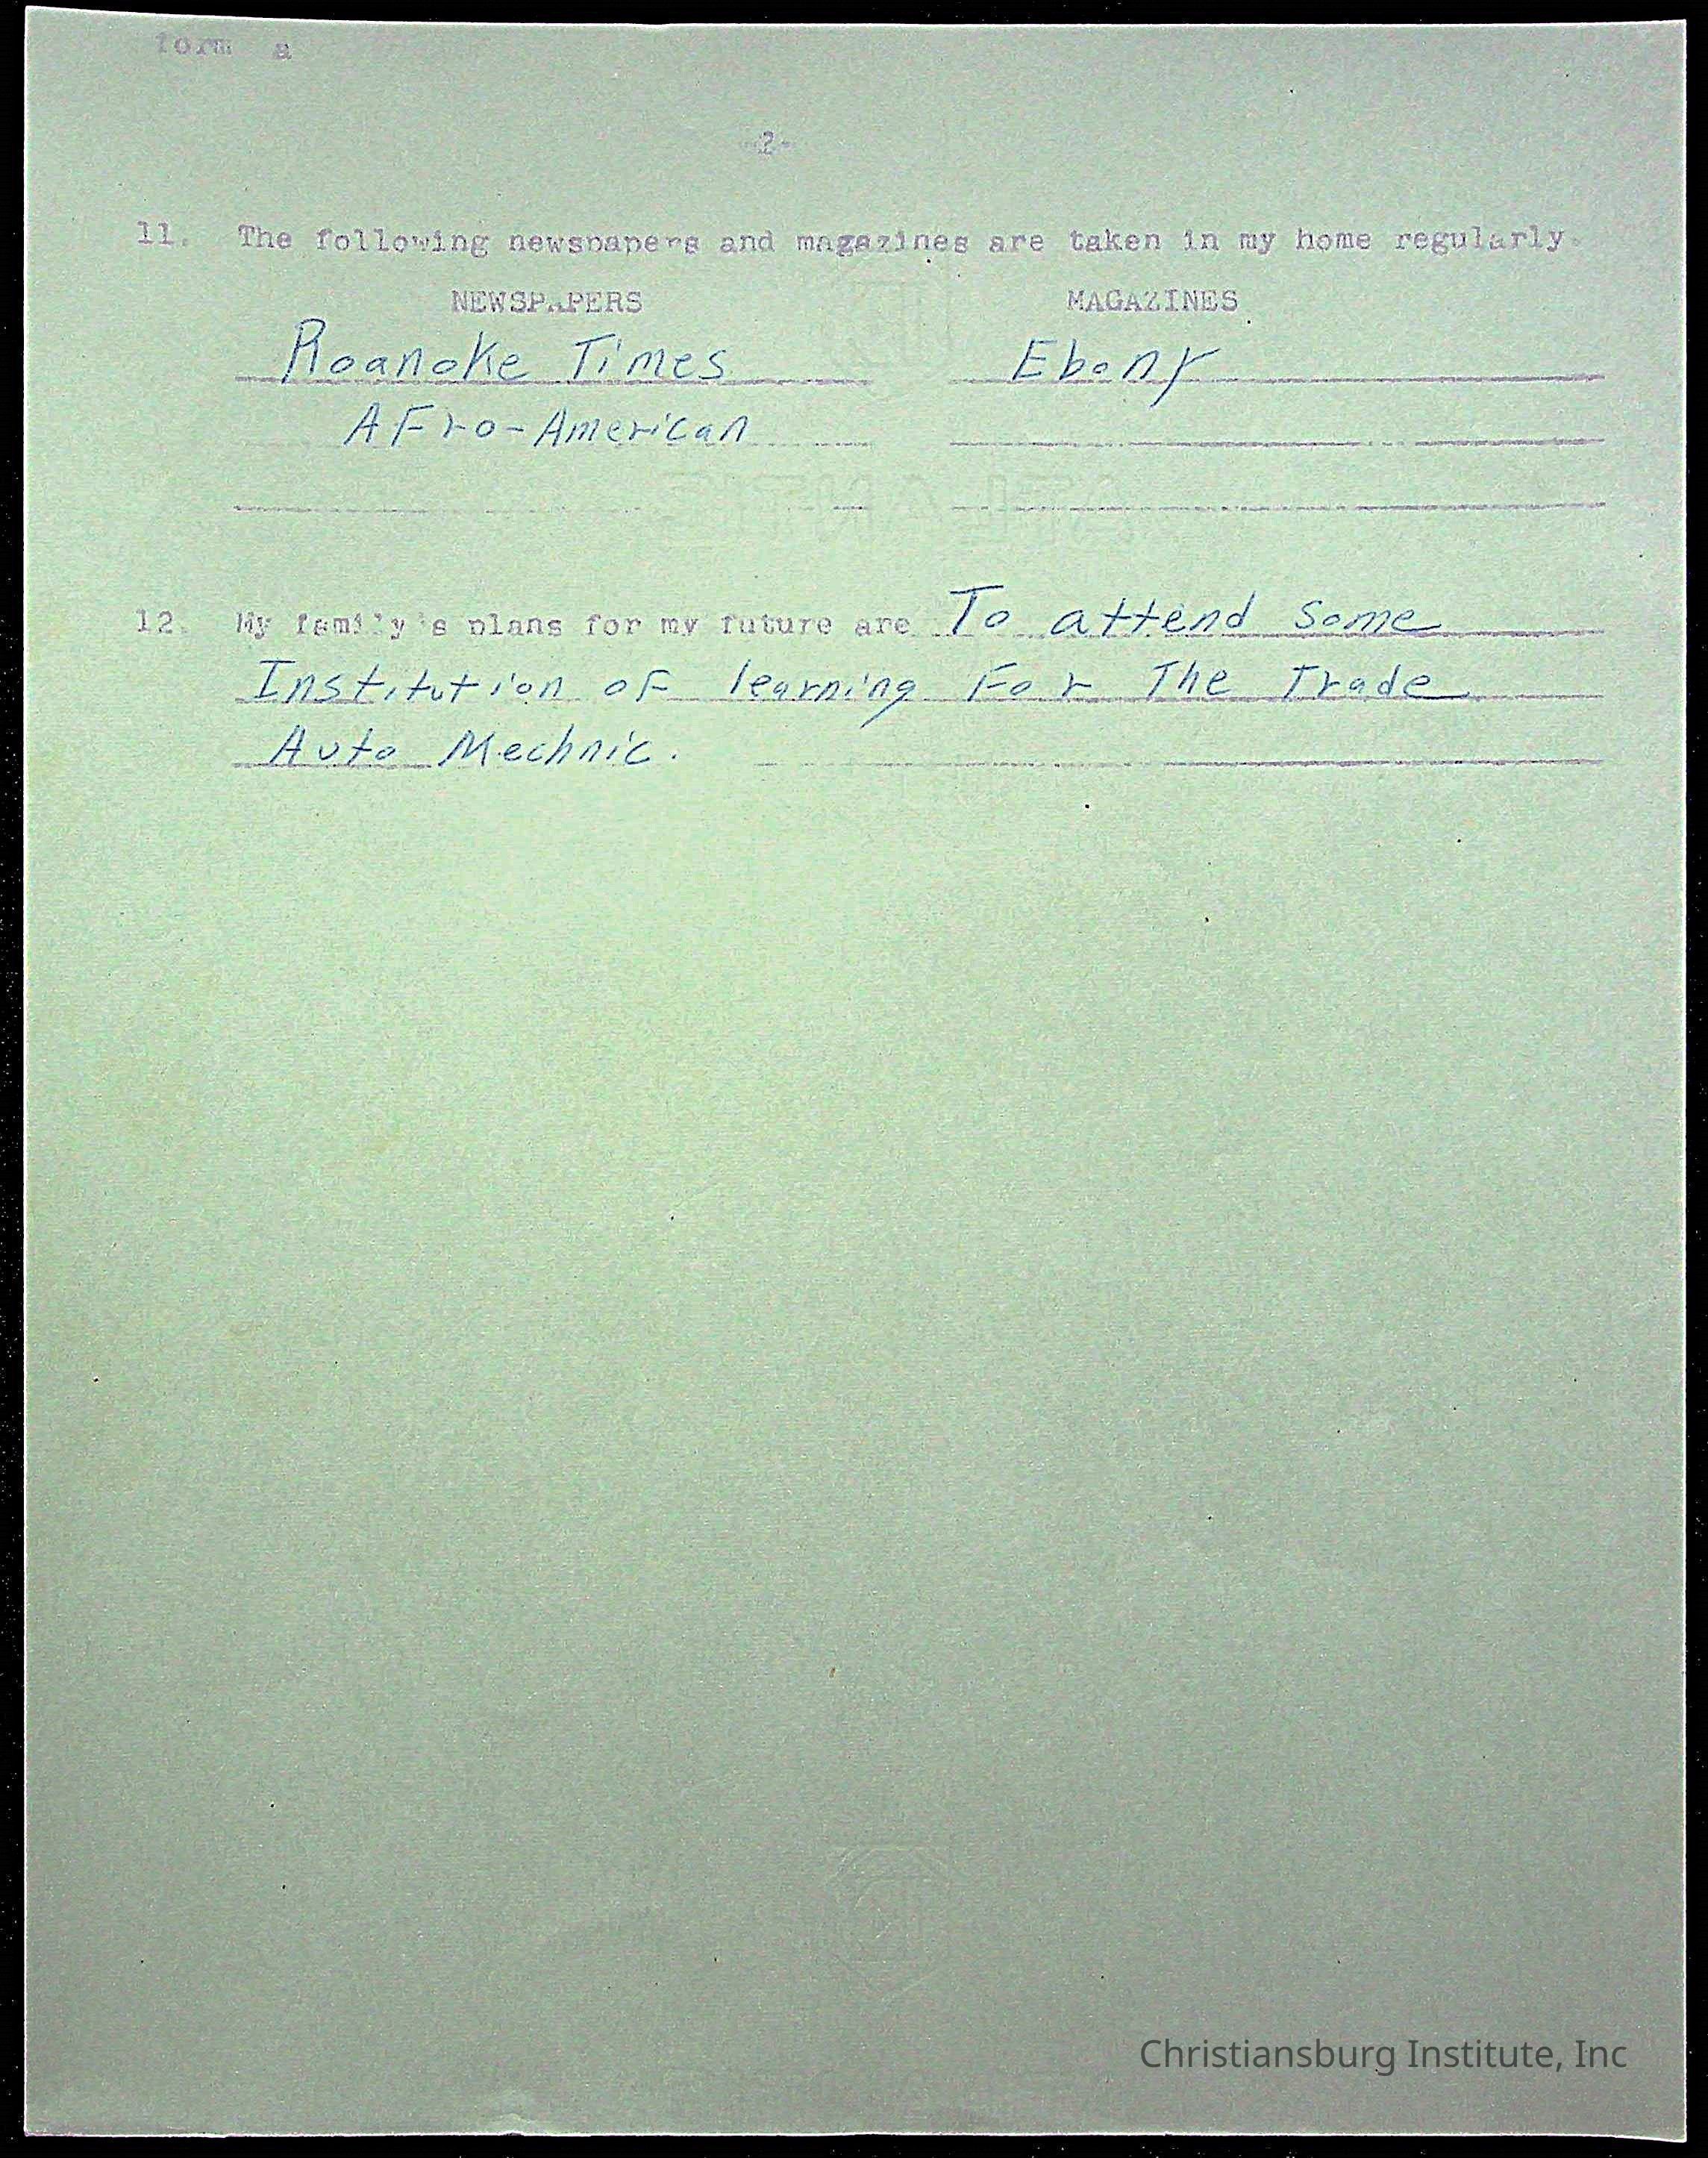 form a
-2-
11. The following newspapers and magazines are taken in my home regularly.
NEWSPAPERS MAGAZINES
Roanoke Times Ebony
AFro-American
ATLANTIC
12. My family's plans for my future are To attend some
Institution oF learning For The Trade
Auto Mechnic.
Christiansburg Institute, Inc